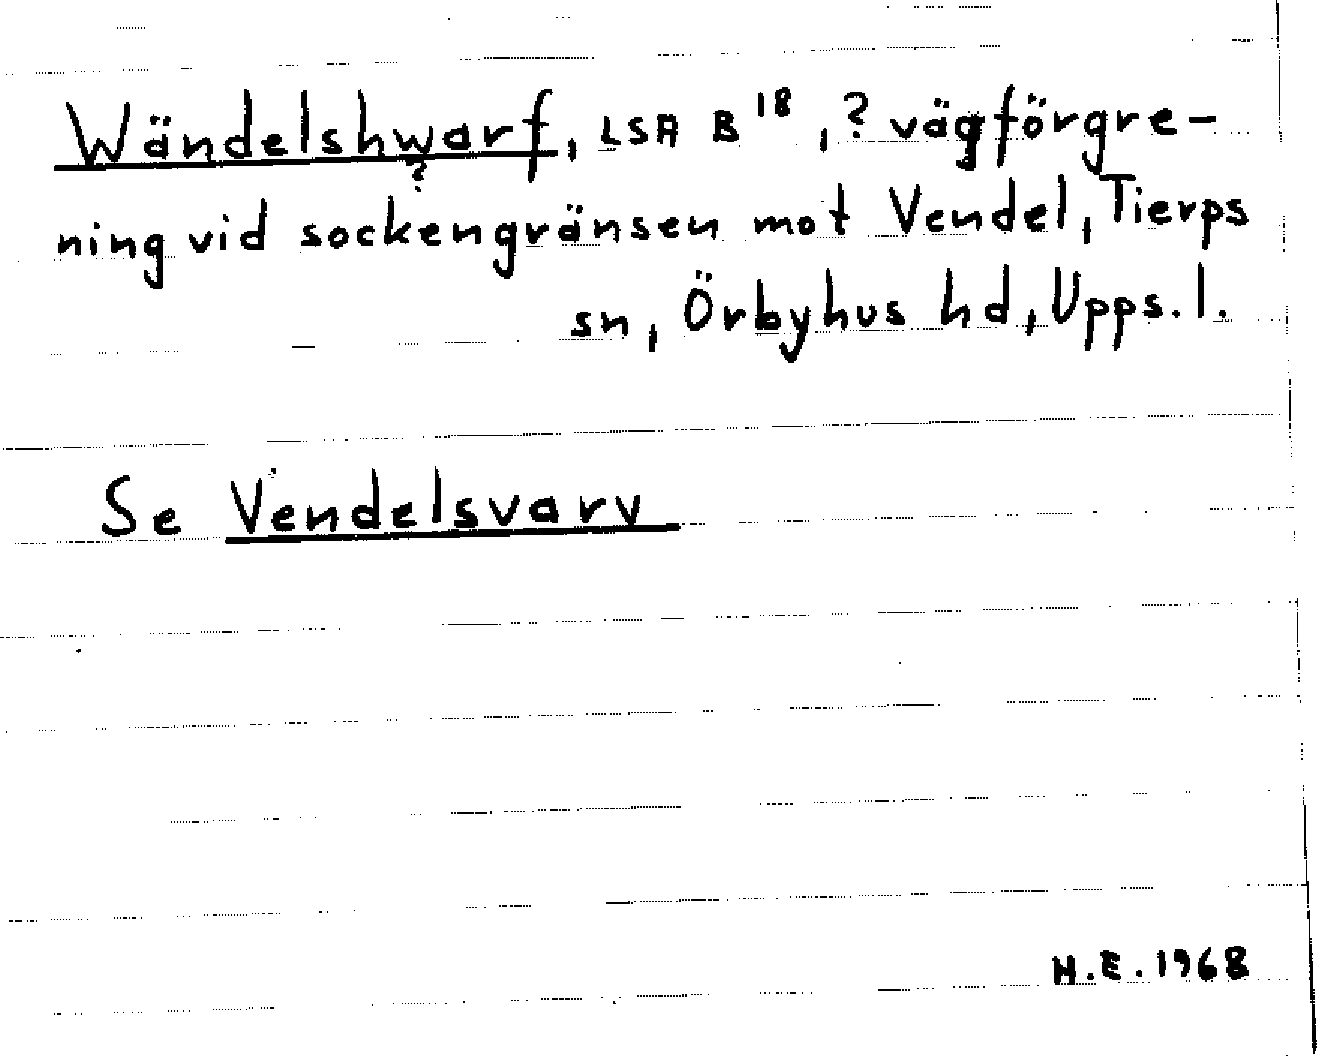 Wändelshwarf, LSA B 18, ? vägförgre-
?
ning vid sockengränsen mot Vendel, Tierps
sn, Örbyhus hd, Upps. l.
Se Vendelsvarv
H.E. 1968